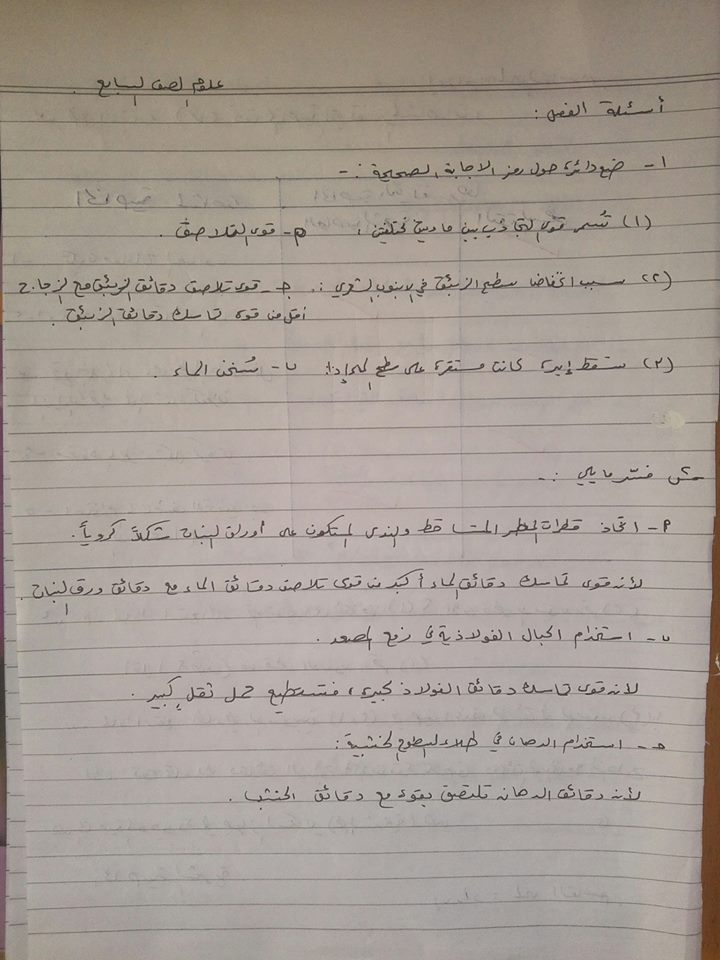 علوم الصف السابع .
أسئلة الفصل :
١- ضع دائرة حول رمز الاجابة الصحيحة :-
(١) تُسمى قوى التجاذب بين مادتين مختلفتين : م- قوى التلاصق .
(٢) سبب انخفاض سطح الزئبق في الانبوب الشعري : ج- قوى تلاصق دقائق الزئبق مع الزجاج
أقل من قوى تماسك دقائق الزئبق .
(٣) ستسقط إبرة كانت مستقرة على سطح الماء إذا : ب- سُخن الماء .
س فسّر ما يلي :-
م- اتخاذ قطرات المطر المتساقط والندى المتكون على أوراق النبات شكلاً كروياً .
لأن قوى تماسك دقائق الماء أكبر من قوى تلاصق دقائق الماء مع دقائق ورق النبات .
ب- استخدام الحبال الفولاذية في رفع المصعد .
لأن قوى تماسك دقائق الفولاذ كبيرة ، فتستطيع حمل ثقل كبير .
ح- استخدام الدهان في طلاء السطوح الخشبية :
لأن دقائق الدهان تلتصق بقوة مع دقائق الخشب .